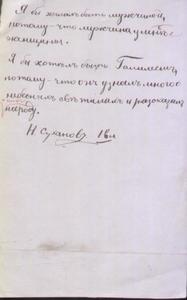 Я бы желалъ быть мужчиной,
потому-что мужчина умнѣе
женщины.
Я бы хотѣлъ быть Галилеемъ,
потому-что онъ узналъ много о
небесныхъ свѣтилахъ и разсказалъ
народу.
Н Сухановъ 18л